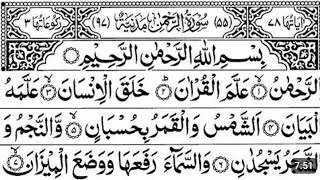 اٰيَاتُهَا ٧٨ (٥٥) سُوْرَةُ الرَّحْمٰنِ مَدَنِيَّةٌ (٩٧) رُكُوْعَاتُهَا ٣
بِسْمِ اللّٰهِ الرَّحْمٰنِ الرَّحِيْمِ
اَلرَّحْمٰنُ ۝١ عَلَّمَ الْقُرْاٰنَ ۝٢ خَلَقَ الْاِنْسَانَ ۝٣ عَلَّمَهُ
الْبَيَانَ ۝٤ اَلشَّمْسُ وَالْقَمَرُ بِحُسْبَانٍ ۝٥ وَّالنَّجْمُ وَ
الشَّجَرُ يَسْجُدٰنِ ۝٦ وَالسَّمَآءَ رَفَعَهَا وَوَضَعَ الْمِيْزَانَ ۝٧
7:51